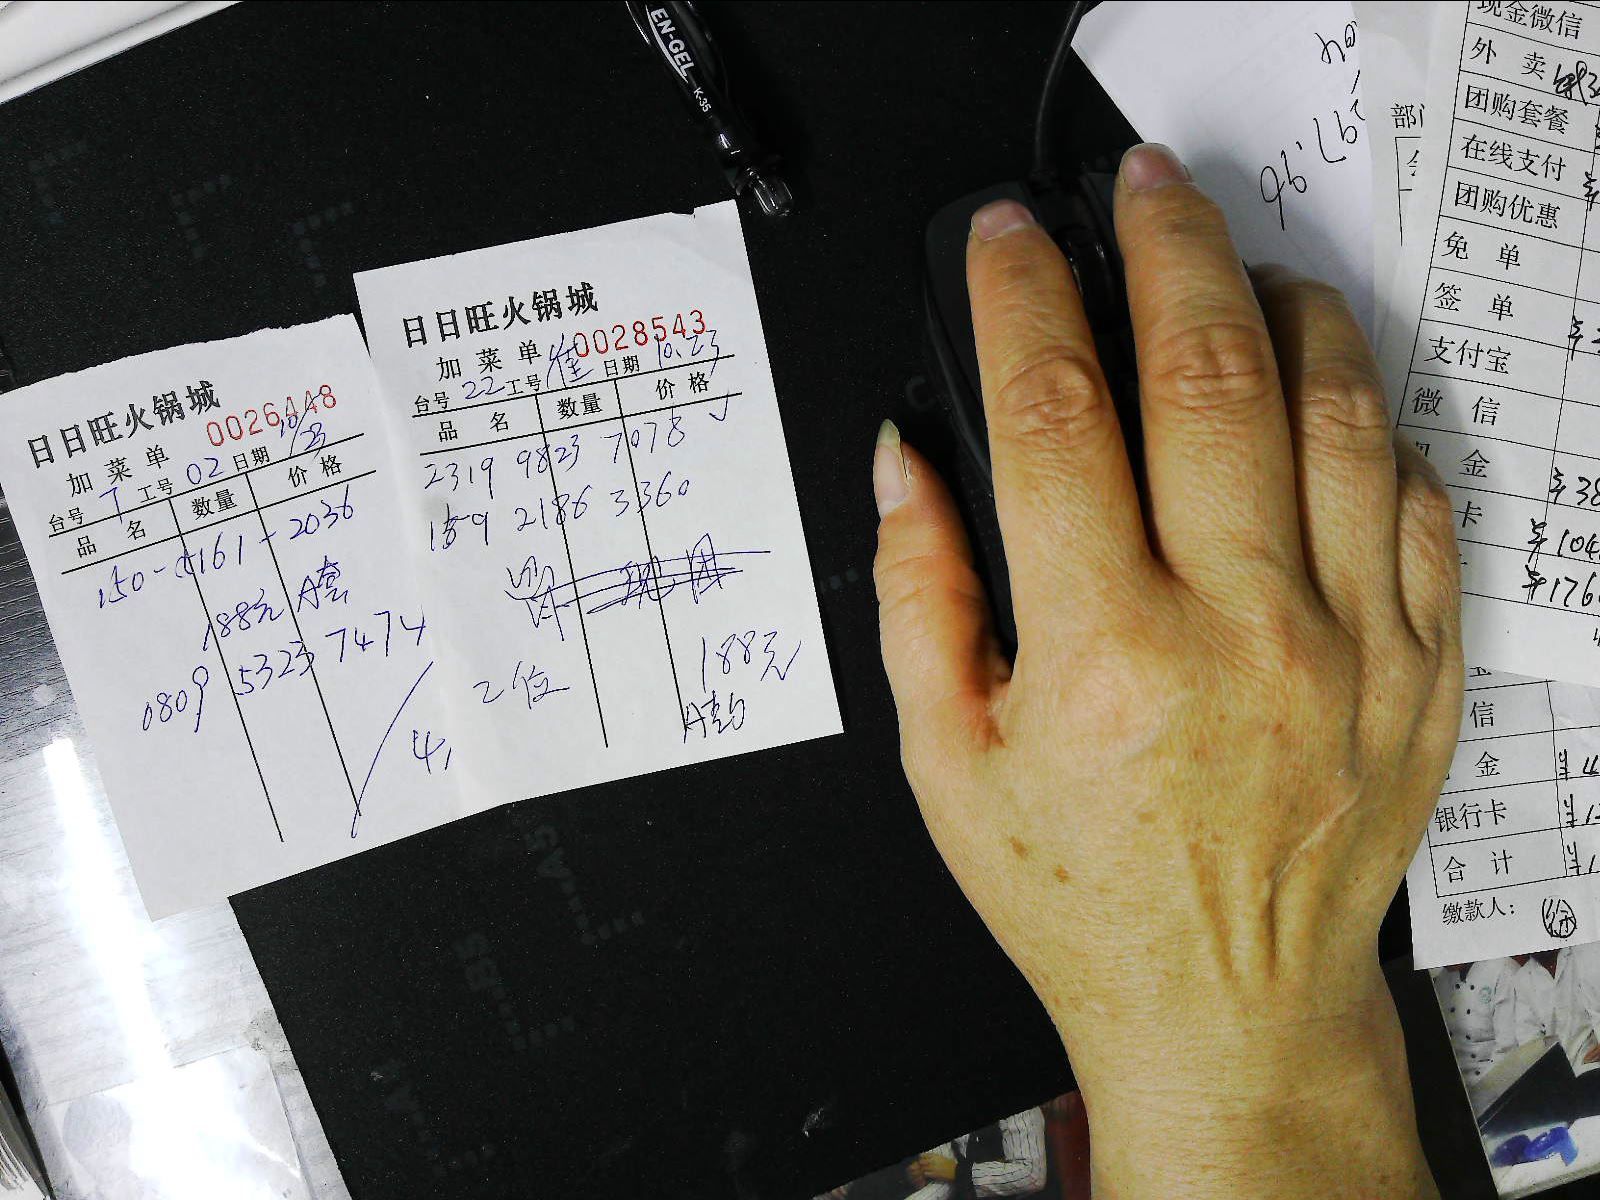 日日旺火锅城
0026448
加菜单
台号 T 工号 02 日期 10/23
品名 数量 价格
150-5161-2036
188元 A套
0809 5323 7474
4,
日日旺火锅城
加菜单 0028543
台号 22 工号 崔 日期 10.23
品名 数量 价格
2319 9823 7078 ✓
159 2186 3360
2位 188元
EN-GEL
K-35
现金微信
外卖
团购套餐
在线支付
团购优惠
免单
签单
支付宝
微信
金 ¥38
卡 ¥104
¥176
信
金
银行卡
合计
缴款人: 徐